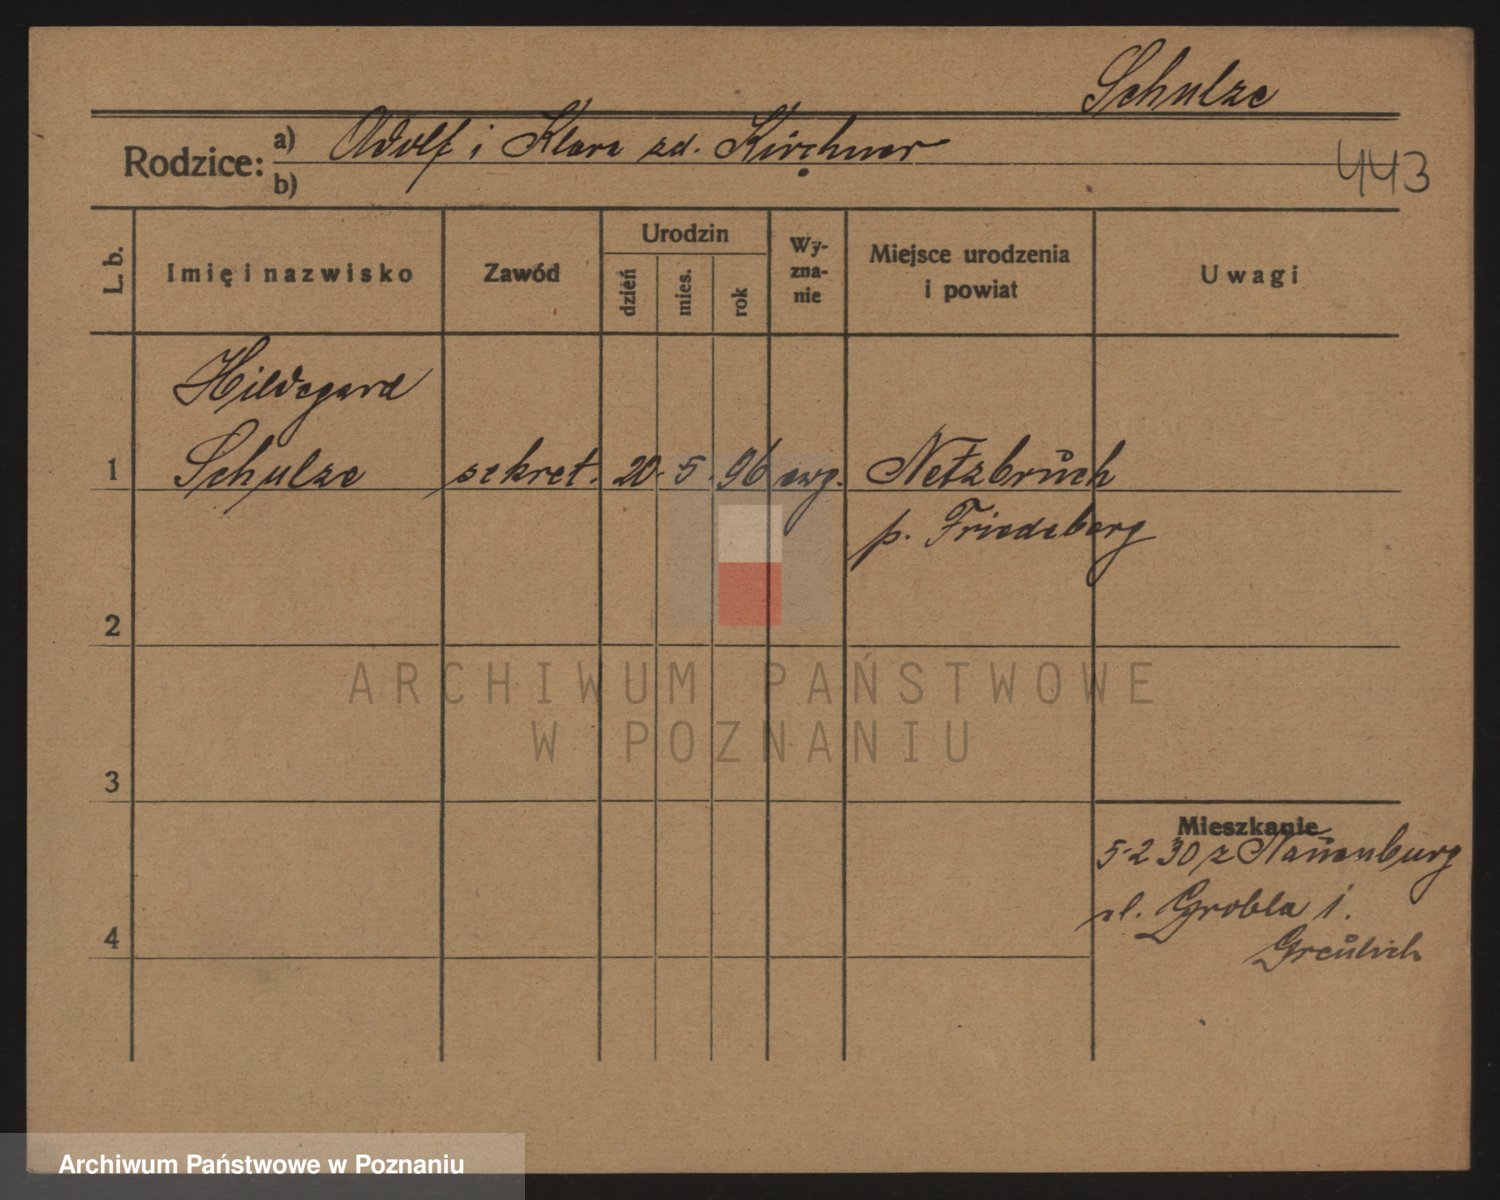 Schulze
Rodzice: a) Adolf i Klara zd. Kirchner
b)
443
L. b.
Imię i nazwisko
Zawód
Urodzin
dzień
mies.
rok
Wy-
zna-
nie
Miejsce urodzenia
i powiat
Uwagi
Hildegard
1 Schulze sekret. 20. 5. 96 ewg. Netzbrŭch
p. Friedeberg
2
3
Mieszkanie
5-2 30 z Naŭenburg
ul. Grobla 1.
4
Greŭlich
ARCHIWUM PAŃSTWOWE
W POZNANIU
Archiwum Państwowe w Poznaniu